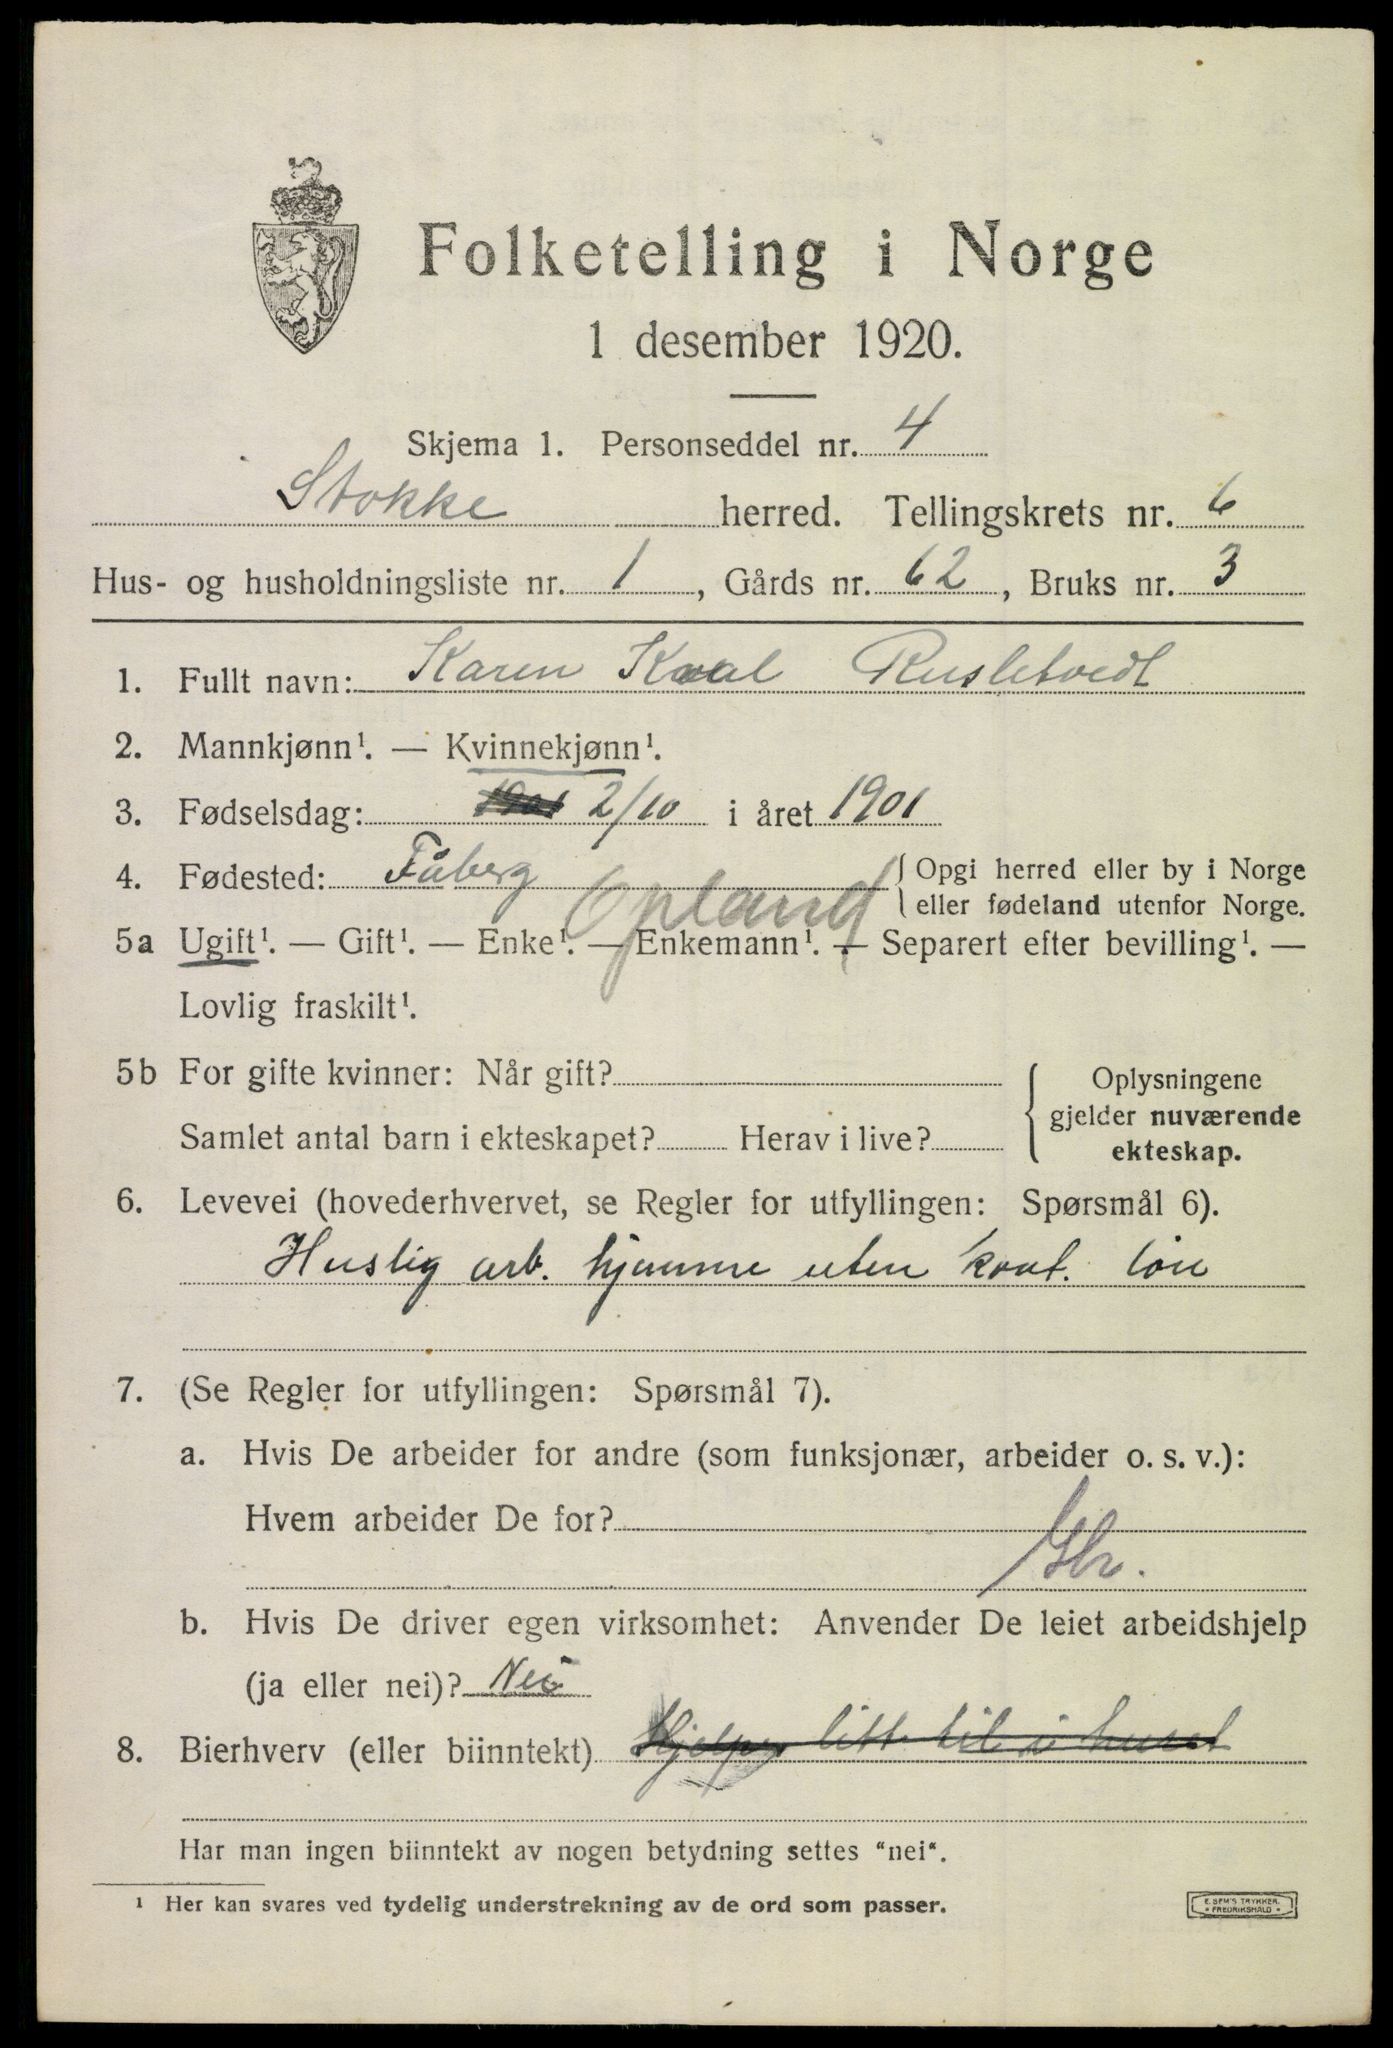 Folketelling i Norge
1 desember 1920.
Skjema 1. Personseddel nr. 4
Stokke herred. Tellingskrets nr. 6
Hus- og husholdningsliste nr. 1, Gårds nr. 62, Bruks nr. 3
1. Fullt navn: Karen Kval Rusletvedt
2. Mannkjønn¹. — Kvinnekjønn¹.
3. Fødselsdag: 1901 2/10 i året 1901
4. Fødested: Fåberg Opland { Opgi herred eller by i Norge
eller fødeland utenfor Norge.
5a Ugift¹. — Gift¹. — Enke¹. — Enkemann¹. — Separert efter bevilling¹. —
Lovlig fraskilt¹.
5b For gifte kvinner: Når gift? { Oplysningene
gjelder nuværende
Samlet antal barn i ekteskapet? Herav i live? ekteskap.
6. Levevei (hovederhvervet, se Regler for utfyllingen: Spørsmål 6).
Huslig arb. hjemme uten kont. løn
7. (Se Regler for utfyllingen: Spørsmål 7).
a. Hvis De arbeider for andre (som funksjonær, arbeider o. s. v.):
Hvem arbeider De for?
b. Hvis De driver egen virksomhet: Anvender De leiet arbeidshjelp
(ja eller nei)? Nei
8. Bierhverv (eller biinntekt) Hjelper litt til i huset
Har man ingen biinntekt av nogen betydning settes "nei".
¹ Her kan svares ved tydelig understrekning av de ord som passer.
E. SEM'S TRYKKERI.
FREDRIKSHALD